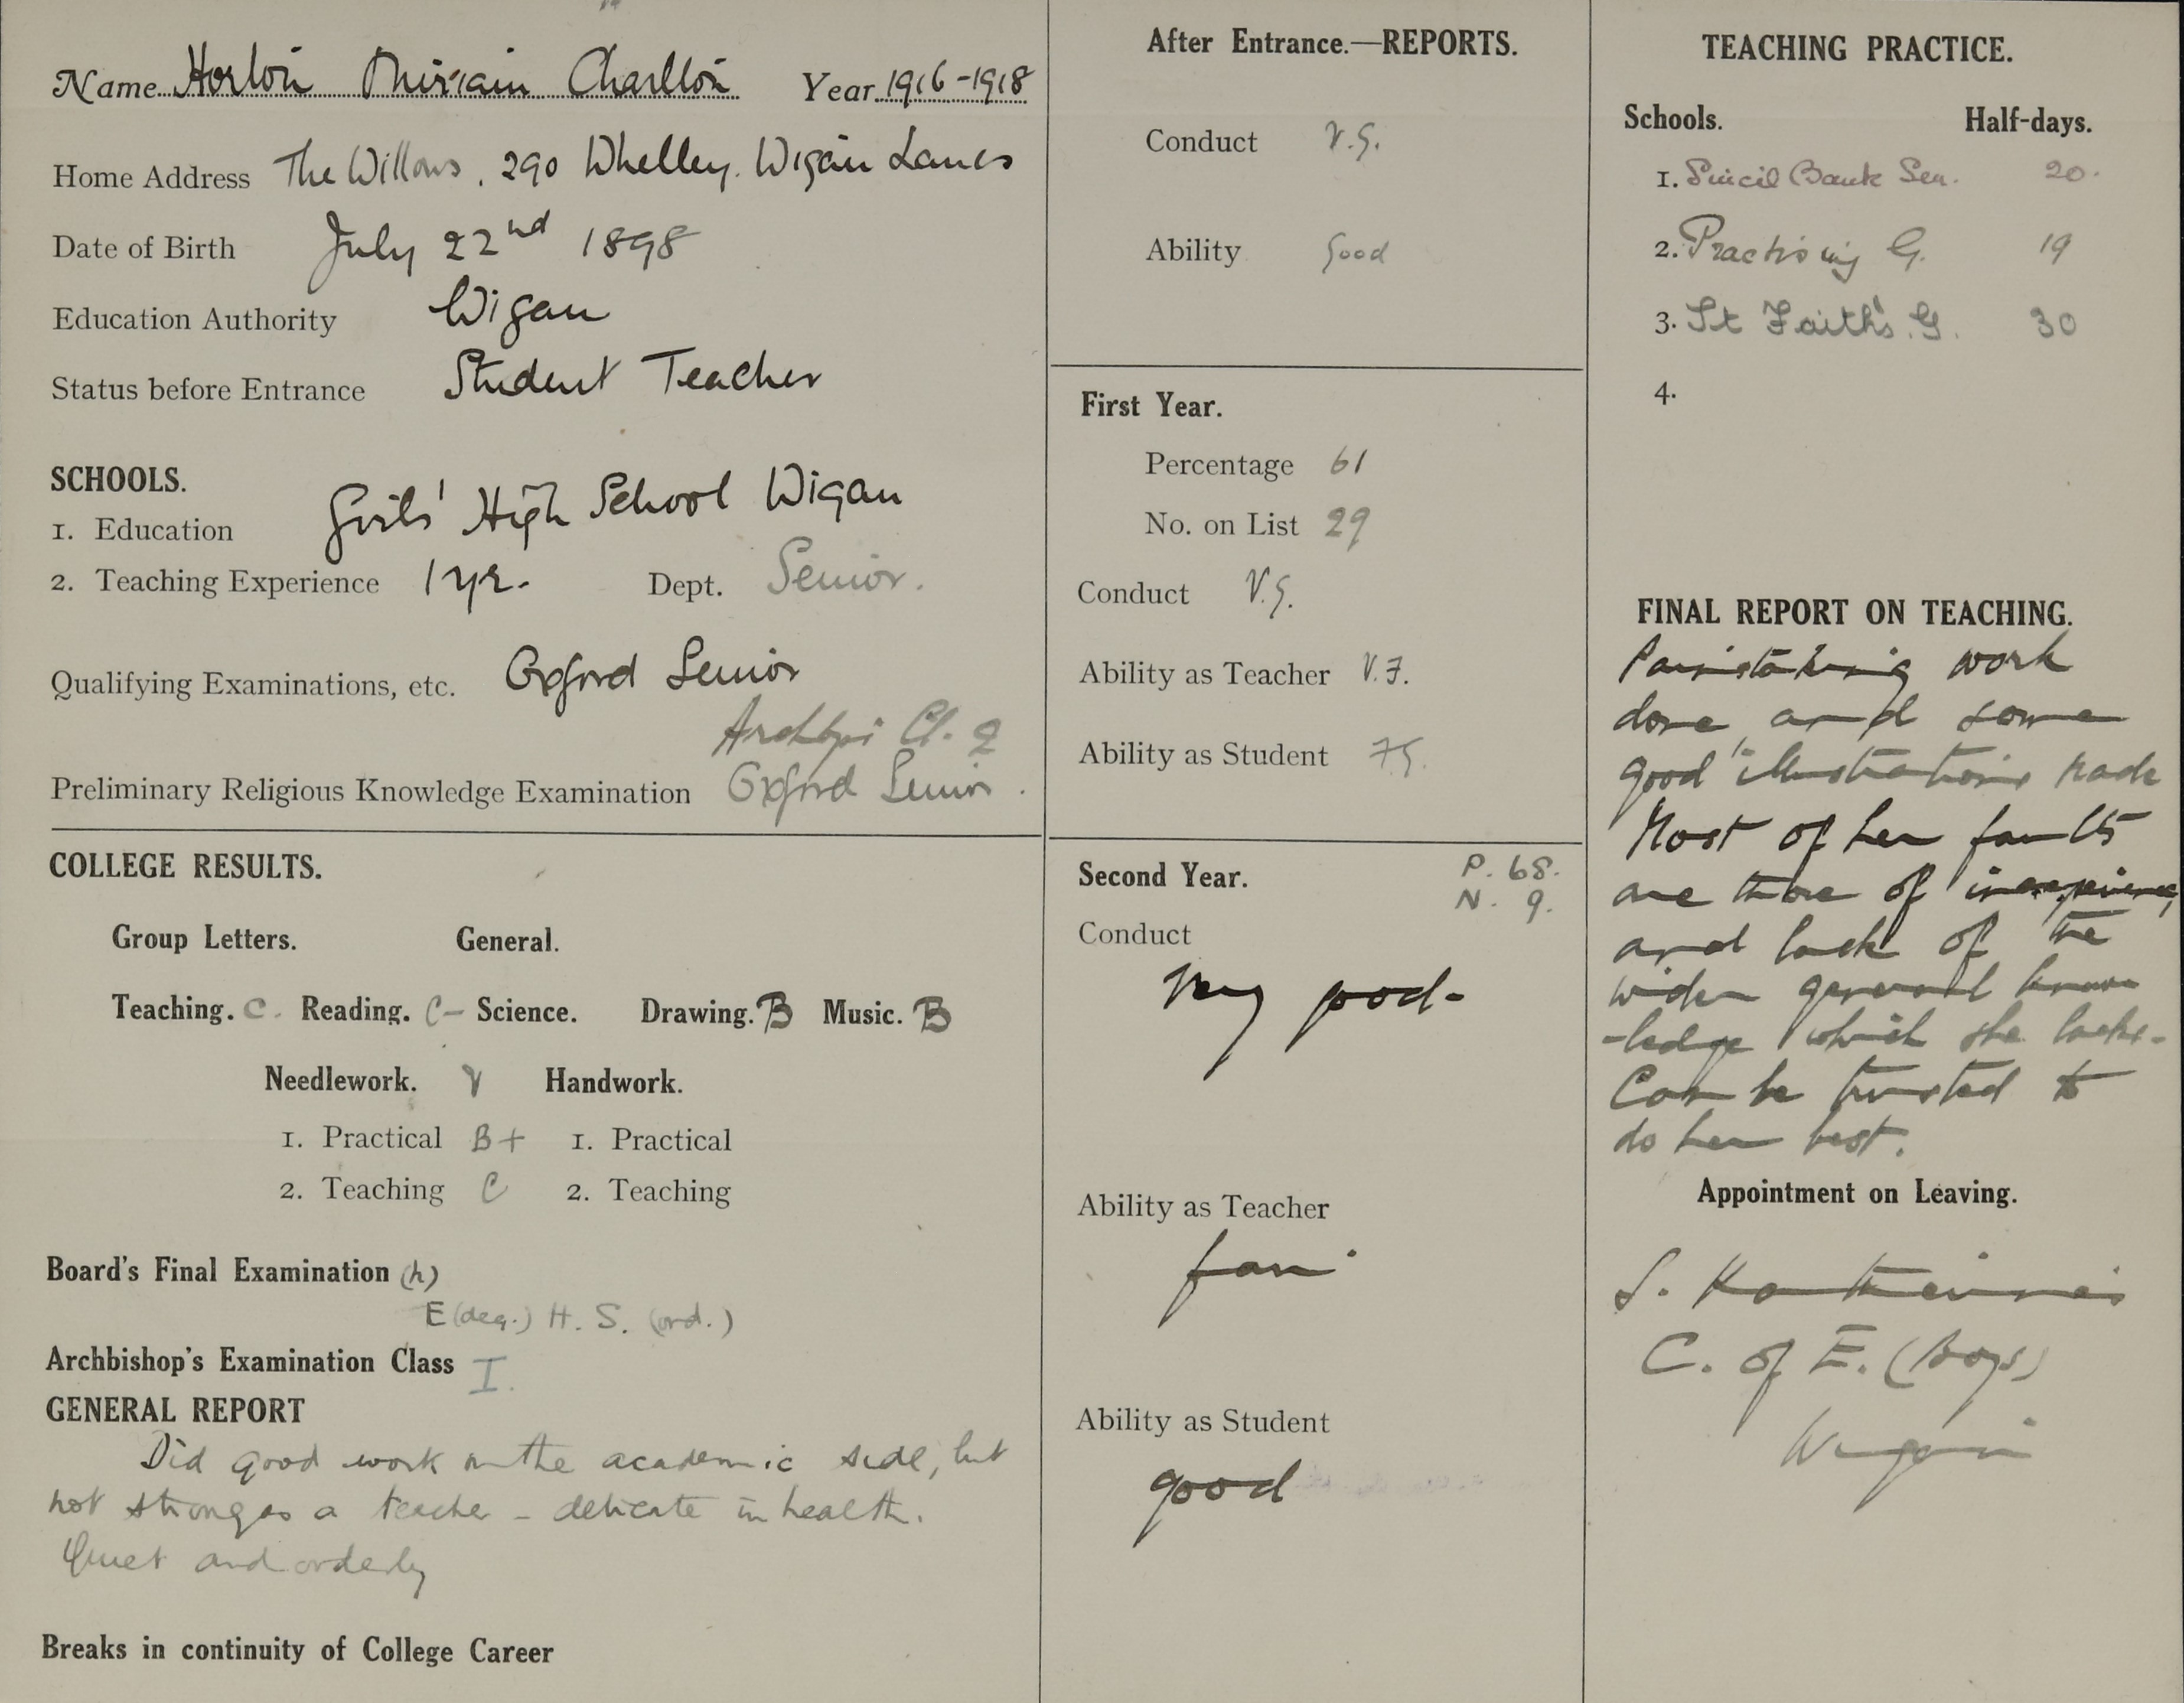 Name Horton Miriam Charlton Year 1916-1918
Home Address The Willows, 290 Whelley, Wigan Lancs
Date of Birth July 22nd 1898
Education Authority Wigan
Status before Entrance Student Teacher
SCHOOLS.
1. Education Girls' High School Wigan
2. Teaching Experience 1 yr. Dept. Senior.
Qualifying Examinations, etc. Oxford Senior
Archbps Cl. 2
Preliminary Religious Knowledge Examination Oxford Senior.
COLLEGE RESULTS.
Group Letters. General.
Teaching. C. Reading. C- Science. Drawing. B Music. B
Needlework. Handwork.
1. Practical B+ 1. Practical
2. Teaching C 2. Teaching
Board's Final Examination (h)
E (deg.) H. S. (ord.)
Archbishop's Examination Class I.
GENERAL REPORT
Did good work on the academic side, but
not strong as a teacher - delicate in health.
Quiet and orderly
Breaks in continuity of College Career
After Entrance.—REPORTS.
Conduct V.G.
Ability Good
First Year.
Percentage 61
No. on List 29
Conduct V.G.
Ability as Teacher V.F.
Ability as Student F.G.
Second Year. P. 68.
N. 9.
Conduct
Very good-
Ability as Teacher
fair
Ability as Student
good
TEACHING PRACTICE.
Schools. Half-days.
1. Sincil Bank Sen. 20.
2. Practising G. 19
3. St Faith's. G. 30
4.
FINAL REPORT ON TEACHING.
Painstaking work
done, and some
good illustrations made
Most of her faults
are those of inexperience,
and lack of the
wider general know
-ledge which she lacks.
Can be trusted to
do her best.
Appointment on Leaving.
S. Katherine's
C. of E. (Boys)
Wigan